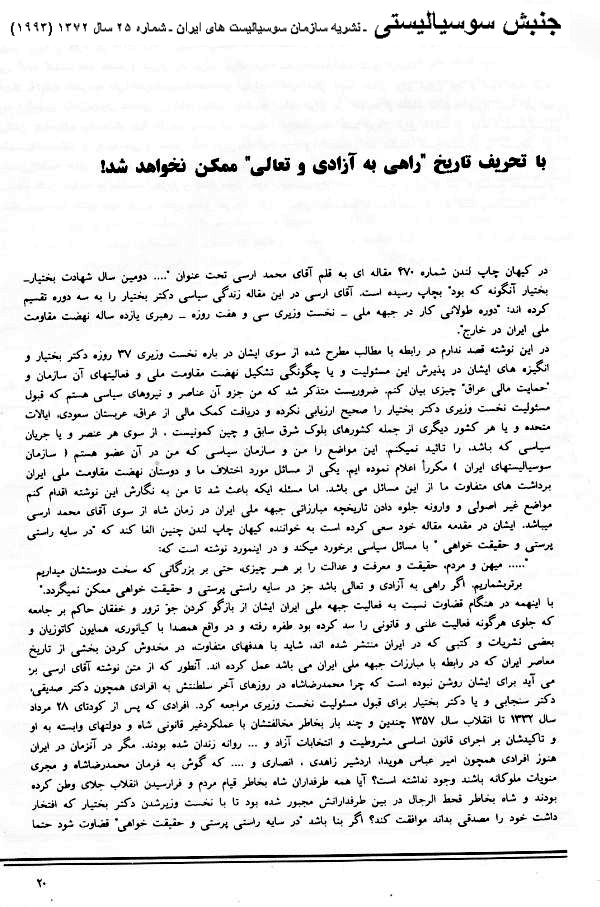 جنبش سوسیالیستی ـ نشریه سازمان سوسیالیست های ایران ـ شماره ۲۵ سال ۱۳۷۲ (۱۹۹۳)
با تحریف تاریخ "راهی به آزادی و تعالی" ممکن نخواهد شد!
در کیهان چاپ لندن شماره ۴۷۰ مقاله ای به قلم آقای محمد ارسی تحت عنوان ".... دومین سال شهادت بختیار–
بختیار آنگونه که بود" بچاپ رسیده است. آقای ارسی در این مقاله زندگی سیاسی دکتر بختیار را به سه دوره تقسیم
کرده اند: "دوره طولانی کار در جبهه ملی – نخست وزیری سی و هفت روزه – رهبری یازده ساله نهضت مقاومت
ملی ایران در خارج".
در این نوشته قصد ندارم در رابطه با مطالب مطرح شده از سوی ایشان در باره نخست وزیری ۳۷ روزه دکتر بختیار و
انگیزه های ایشان در پذیرش این مسئولیت و یا چگونگی تشکیل نهضت مقاومت ملی و فعالیتهای آن سازمان و
"حمایت مالی عراق" چیزی بیان کنم. ضروریست متذکر شد که من جزو آن عناصر و نیروهای سیاسی هستم که قبول
مسئولیت نخست وزیری دکتر بختیار را صحیح ارزیابی نکرده و دریافت کمک مالی از عراق، عربستان سعودی، ایالات
متحده و یا هر کشور دیگری از جمله کشورهای بلوک شرق سابق و چین کمونیست ، از سوی هر عنصر و یا جریان
سیاسی که باشد، را تائید نمیکنم. این مواضع را من و سازمان سیاسی که من در آن عضو هستم ( سازمان
سوسیالیستهای ایران ) مکرراً اعلام نموده ایم. یکی از مسائل مورد اختلاف ما و دوستان نهضت مقاومت ملی ایران
برداشت های متفاوت ما از این مسائل می باشد. اما مسئله ایکه باعث شد تا من به نگارش این نوشته اقدام کنم
مواضع غیر اصولی و وارونه جلوه دادن تاریخچه مبارزاتی جبهه ملی ایران در زمان شاه از سوی آقای محمد ارسی
میباشد. ایشان در مقدمه مقاله خود سعی کرده است به خواننده کیهان چاپ لندن چنین القا کند که "در سایه راستی
پرستی و حقیقت خواهی " با مسائل سیاسی برخورد میکند و در اینمورد نوشته است که:
"..... میهن و مردم، حقیقت و معرفت و عدالت را بر هسر چیزی، حتی بر بزرگانی که سخت دوستشان میداریم
برتربشماریم. اگر راهی به آزادی و تعالی باشد جز در سایه راستی پرستی و حقیقت خواهی ممکن نمیگردد."
با اینهمه در هنگام قضاوت نسبت به فعالیت جبهه ملی ایران ایشان از بازگو کردن جوّ ترور و خفقان حاکم بر جامعه
که جلوی هرگونه فعالیت علنی و قانونی را سد کرده بود طفره رفته و در واقع همصدا با کیانوری، همایون کاتوزیان و
بعضی نشریات و کتبی که در ایران منتشر شده اند، شاید با هدفهای متفاوت، در مخدوش کردن بخشی از تاریخ
معاصر ایران که در رابطه با مبارزات جبهه ملی ایران می باشد عمل کرده اند. آنطور که از متن نوشته آقای ارسی بر
می آید برای ایشان روشن نبوده است که چرا محمدرضاشاه در روزهای آخر سلطنتش به افرادی همچون دکتر صدیقی،
دکتر سنجابی و یا دکتر بختیار برای قبول مسئولیت نخست وزیری مراجعه کرد. افرادی که پس از کودتای ۲۸ مرداد
سال ۱۳۳۲ تا انقلاب سال ۱۳۵۷ چندین و چند بار بخاطر مخالفتشان با عملکردغیر قانونی شاه و دولتهای وابسته به او
و تاکیدشان بر اجرای قانون اساسی مشروطیت و انتخابات آزاد و ... روانه زندان شده بودند. مگر در آنزمان در ایران
هنوز افرادی همچون امیر عباس هویدا، اردشیر زاهدی ، انصاری و .... که گوش به فرمان محمدرضاشاه و مجری
منویات ملوکانه باشند وجود نداشته است؟ آیا همه طرفداران شاه بخاطر قیام مردم و فرارسیدن انقلاب جلای وطن کرده
بودند و شاه بخاطر قحط الرجال در بین طرفدارانش مجبور شده بود تا با نخست وزیرشدن دکتر بختیار که افتخار
داشت خود را مصدقی بداند موافقت کند؟ اگر بنا باشد "در سایه راستی پرستی و حقیقت خواهی" قضاوت شود حتما
۲۰